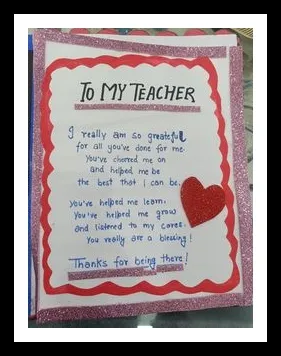 TO MY TEACHER
I really am so grateful
for all you've done for me.
You've cheered me on
and helped me be
the best that I can be.
You've helped me learn,
You've helped me grow
and listened to my cares.
You really are a blessing!
Thanks for being there!